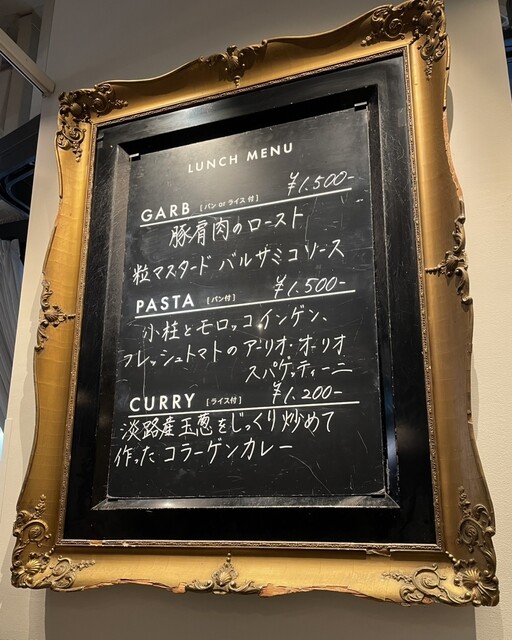 LUNCH MENU
GARB [パン or ライス付] ¥1.500-
豚肩肉のロースト
粒マスタード バルサミコソース
PASTA [パン付] ¥1.500-
小柱とモロッコインゲン、
フレッシュトマトのアーリオ・オーリオ
スパゲッティーニ
CURRY [ライス付] ¥1.200-
淡路産玉葱をじっくり炒めて
作った コラーゲンカレー